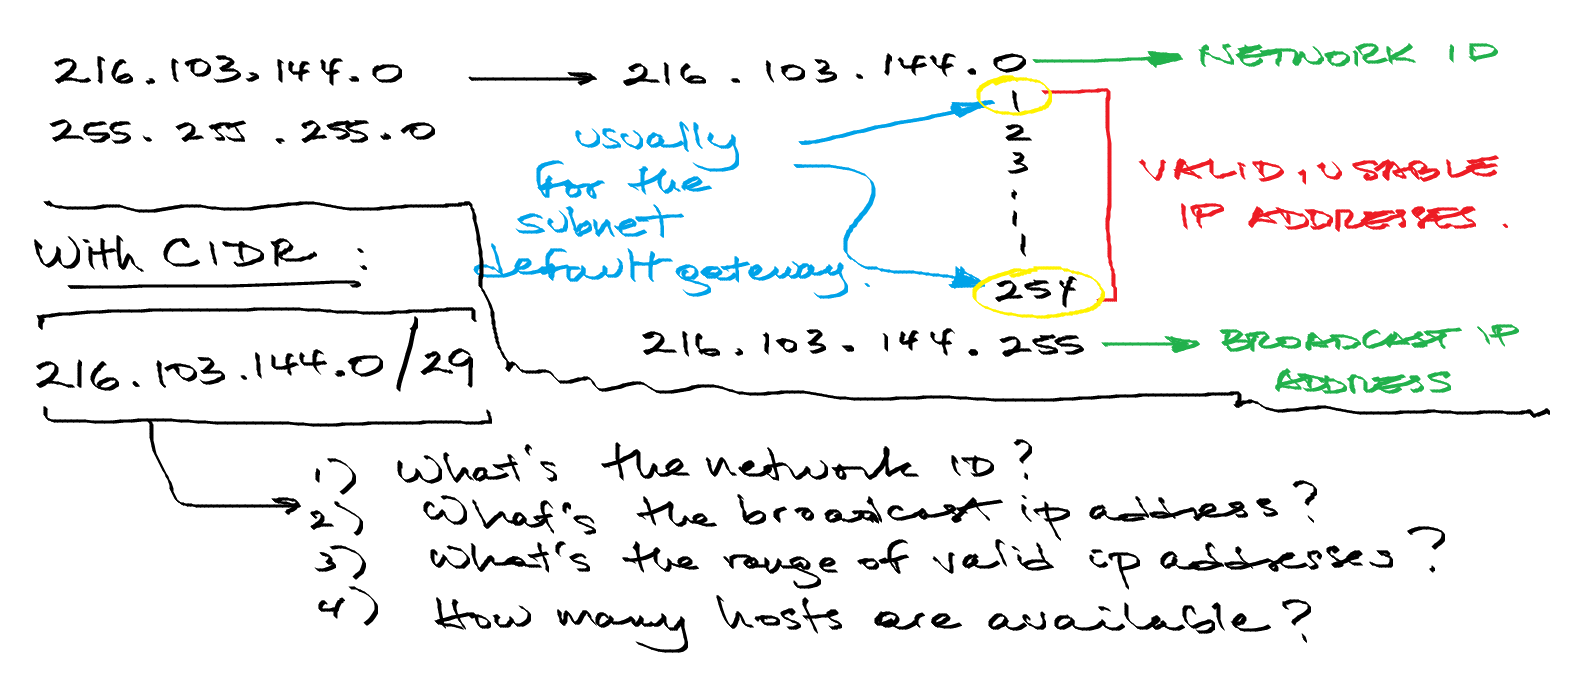 216.103.144.0
255.255.255.0
216.103.144.0
NETWORK ID
1
2
3
.
1
1
254
usually
for the
subnet
default gateway.
VALID, USABLE
IP ADDRESSES.
216.103.144.255
BROADCAST IP
ADDRESS
With CIDR:
216.103.144.0/29
1) What's the network ID?
2) What's the broadcast ip address?
3) What's the range of valid ip addresses?
4) How many hosts are available?